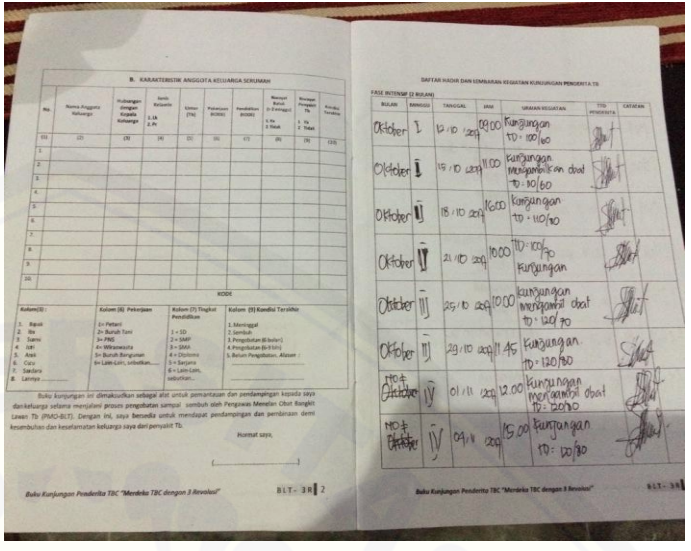 B. KARAKTERISTIK ANGGOTA KELUARGA SERUMAH
No.
Nama Anggota Keluarga
Hubungan dengan Kepala Keluarga
Jenis Kelamin
1. Lk
2. Pr
Umur (Th)
Pekerjaan (KODE)
Pendidikan (KODE)
Riwayat Batuk
1. Ya
2. Tidak
Riwayat Penyakit Tb
1. Ya
2. Tidak
Kondisi Terakhir
(1) (2) (3) (4) (5) (6) (7) (8) (9) (10)
1.
2.
3.
4.
5.
6.
7.
8.
9.
10.
KODE
Kolom (3) :
1. Bapak
2. Ibu
3. Suami
4. Istri
5. Anak
6. Cucu
7. Saudara
8. Lainnya
Kolom (6) Pekerjaan
1= Petani
2= Buruh Tani
3= PNS
4= Wiraswasta
5= Buruh Bangunan
6= Lain-Lain, sebutkan...
Kolom (7) Tingkat Pendidikan
1 = SD
2 = SMP
3 = SMA
4 = Diploma
5 = Sarjana
6 = Lain-Lain, sebutkan...
Kolom (9) Kondisi Terakhir
1. Meninggal
2. Sembuh
5. Belum Pengobatan, Alasan :
Buku kunjungan ini dimaksudkan sebagai alat untuk pemantauan dan pendampingan kepada saya
dan keluarga selama menjalani proses pengobatan sampai sembuh oleh Pengawas Menelan Obat Bangkit
Lawan Tb (PMO-BLT). Dengan ini, saya bersedia untuk mendapat pendampingan dan pembinaan demi
kesembuhan dan keselamatan keluarga saya dari penyakit Tb.
Hormat saya,
Buku Kunjungan Penderita TBC "Merdeka TBC dengan 3 Revolusi"
BLT- 3R 2
DAFTAR HADIR DAN KEGIATAN KUNJUNGAN PENDERITA TB
FASE INTENSIF (2 BULAN)
BULAN MINGGU TANGGAL JAM URAIAN KEGIATAN TTD PENDERITA CATATAN
Oktober I 12/10 2017 09.00 Kunjungan
TD = 100/60
Oktober 15/10 2017 11.00 Kunjungan
mengambilkan obat
TD = 110/60
Oktober II 18/10 2017 16.00 Kunjungan
TD = 110/80
Oktober 21/10 2017 10.00 TD = 100/70
Kunjungan
Oktober III 25/10 2017 10.00 Kunjungan
mengambil obat
TD = 120/90
Oktober III 29/10 2017 11.45 Kunjungan
TD = 120/80
Oktober IV 01/11 2017 12.00 Kunjungan
mengambil obat
TD = 120/80
Oktober IV 2017 15.00 Kunjungan
TD = 120/80
Buku Kunjungan Penderita TBC "Merdeka TBC dengan 3 Revolusi"
BLT- 3R